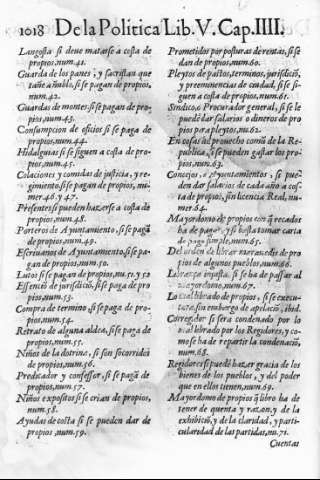 1018 De la Politica Lib. V. Cap. IIII.
Langosta si deue matarse a costa de
propios, num. 41.
Guarda de los panes, y sacristan que
tañe a nublo, si se pagan de propios,
num. 42.
Guardas de montes, si se pagan de propios,
num. 43.
Consumpcion de oficios si se paga de
propios, num. 44.
Hidalguias si se siguen a costa de pro-
pios, num. 45.
Colaciones y comidas de justicia, y re-
gimiento, si se pagan de propios, nu-
mer. 46. y 47.
Presentes si pueden hazerse a costa de
propios, num. 48.
Porteros de Ayuntamiento, si se pagã
de propios, num. 49.
Escriuanos de Ayuntamiento, si se pa-
gan de propios, num. 50.
Lutos si se pagan de propios, nu. 51. y 52
Essencio de jurisdiciõ, si se paga de pro
pios, num. 53.
Compra de termino, si se paga de pro-
pios, num. 54.
Retrato de alguna aldea, si se paga de
propios, num. 55.
Niños de la dotrina, si son socorridos
de propios, num. 56.
Predicador y confessor, si se pagã de
propios, num. 57.
Niños expositos si se crian de propios,
num. 58.
Ayudas de costa si se pueden dar de
propios, num. 59.
Prometidos por posturas de rentas, si se
dan de propios, num. 60.
Pleytos de pastos, terminos, jurisdiciõ,
y preeminencias de ciudad, si se si-
guen a costa de propios, num. 61.
Sindico, o Procurador general, si se le
puedẽ dar salarios o dineros de pro
pios para pleytos, nu. 62.
En cosas de prouecho comũ de la Re-
publica, si se pueden gastar los pro-
pios, num. 63.
Concejos, o Ayuntamientos, si pue-
den dar salarios de cada año a cos-
ta de propios, sin licencia Real, nu-
mer. 64.
Mayordomo de propios con q̃ recados
ha de pagar, y si basta tomar carta
de pago simple, num. 65.
Del orden de librar marauedis de pro
pios de algunos pueblos, num. 66.
Librança injusta, si se ha de passar al
mayordomo, num. 67.
Lo mal librado de propios, si se execu-
tara, sin embargo de apelaciõ, ibid.
Corregidor si sera condenado por lo
mal librado por los Regidores, y co-
mo se ha de repartir la condenaciõ,
num. 68.
Regidores si puedẽ hazer gracia de los
bienes de los pueblos, y del poder
que en ellos tienen, num. 69.
Mayordomo de propios q̃ libro ha de
tener de quenta y razon, y de la
exhibiciõ, y de la claridad, y parti-
cularidad de las partidas, nu. 71.
Cuentas